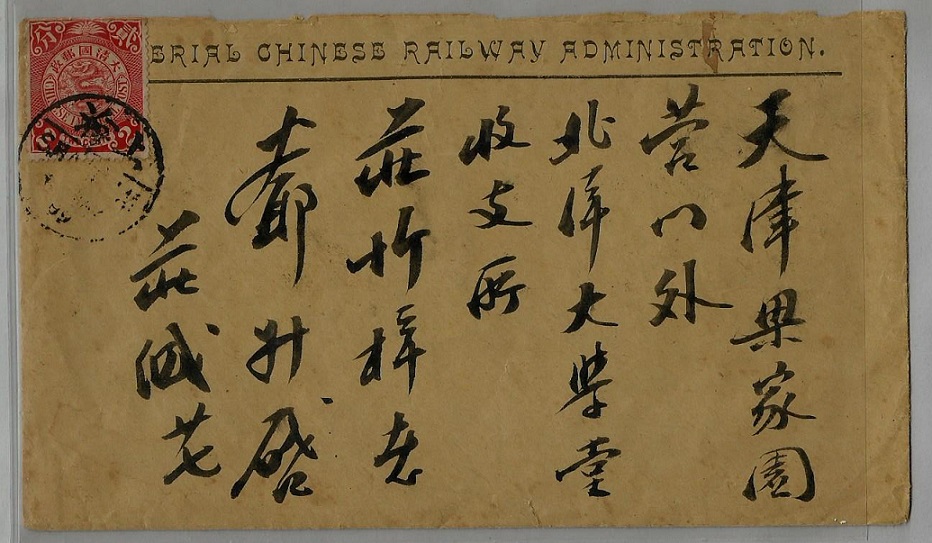 ERIAL CHINESE RAILWAY ADMINISTRATION.
貳分
大清國郵政
2 2
天津梁家園
营门外
北洋大學堂
收支所
莊
大爺升啓
莊緘